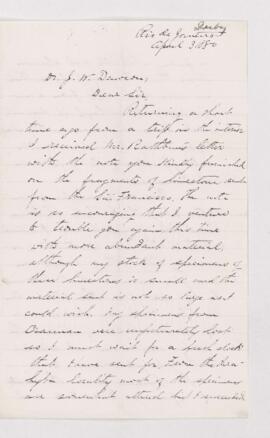 Derby
Rio de Janeiro
April 3 1880
Dr. J. W. Dawson,
Dear Sir,
Returning a short
time ago from a trip in the interior
I received Mr. Rathbun's letter
with the note you kindly furnished
on the fragments of limestone sent
from the São Francisco. The note
is so encouraging that I venture
to trouble you again this time
with more abundant material,
although my stock of specimens of
these limestones is small and the
material sent is not so large as I
could wish. My specimens from
were unfortunately lost
so I must wait for a fresh stock
that I have sent for. From the
locality most of the specimens
are somewhat altered but I